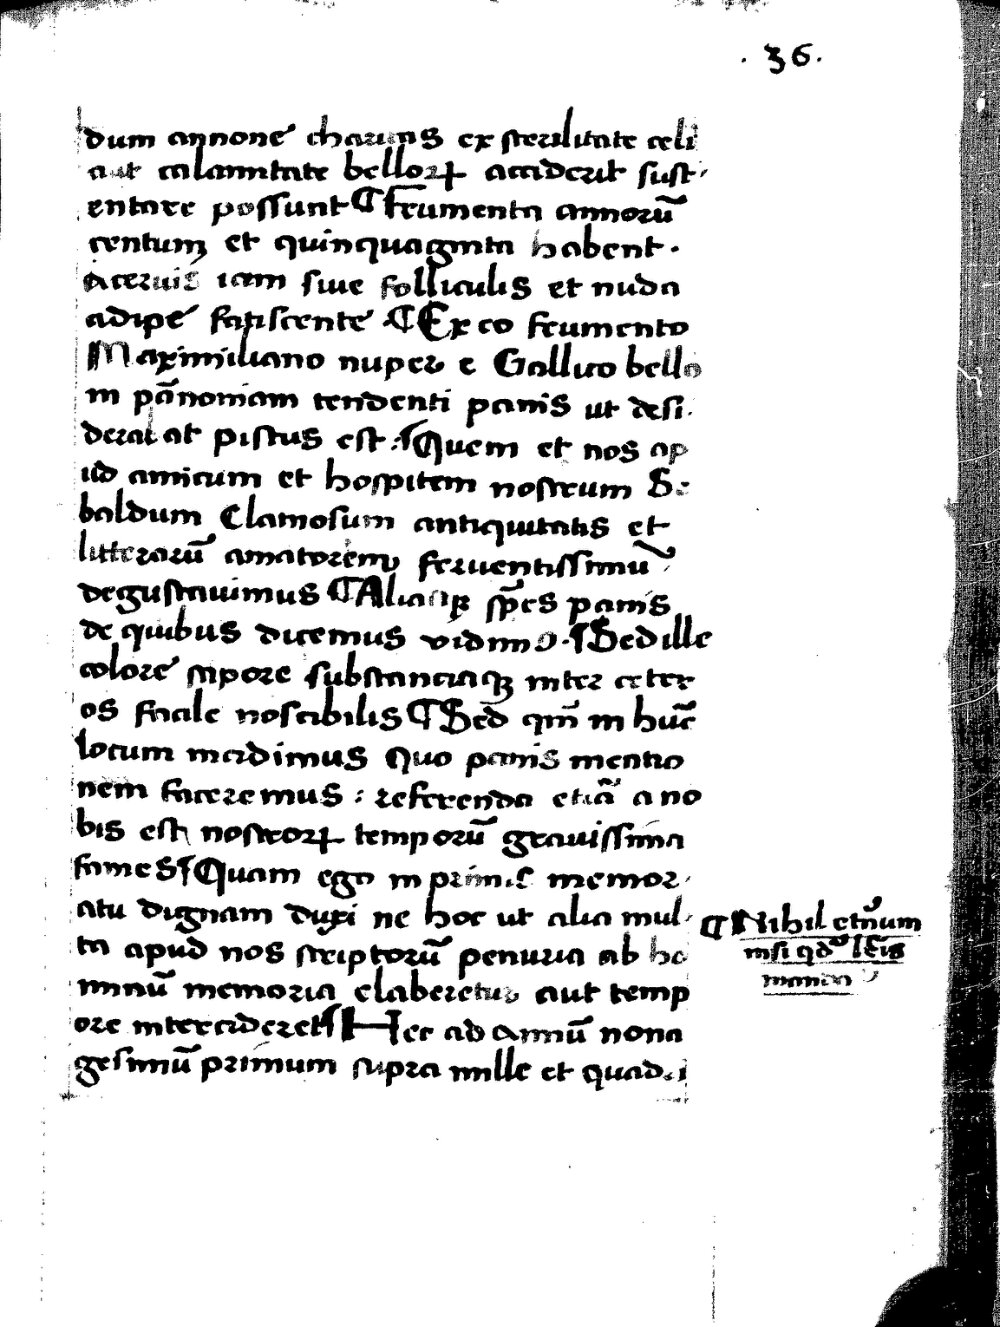 . 36 .
dum annone charitas ex sterilitate celi
aut calamitate belloꝝ acciderit sust-
entare possunt ¶ frumenta annorū
centum et quinquaginta habent .
Aceruis iam siue folliculis et nuda
adipe fatiscente . ¶ Ex eo frumento
Maximiliano nuper e Gallico bello
in pānoniam tendenti panis ut desi-
derat at pistus est . ¶ Quem et nos ap
ud amicum et hospitem nostrum Se
baldum Clamosum antiquitatis et
litterarū amatorem feruentissimū
degustauimus ¶ Aliasqꝫ spēs panis
de quibus dicemus vidimꝰ . ¶ Sed ille
colore sapore substanciaqꝫ inter ceter
os facile noscibilis ¶ Sed qm̄ in hūc
locum incidimus quo panis mentio
nem faceremus : referenda etiā a no
bis est nostroꝝ temporū grauissima
fames ¶ Quam ego in primis memor-
atu dignam duxi ne hoc ut alia mul-
ta apud nos scriptorū penuria ab ho
minū memoria elaberetur aut temp
ore intercideret ¶ Hec ad Annū nona
gesimū primum supra mille et quadri
¶ Nihil etn̄um
nisi qd̄ lr̄is
mando